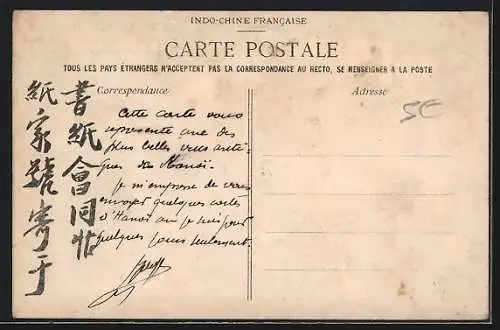 INDO-CHINE FRANÇAISE
CARTE POSTALE
TOUS LES PAYS ÉTRANGERS N'ACCEPTENT PAS LA CORRESPONDANCE AU RECTO, SE RENSEIGNER A LA POSTE
Correspondance
Adresse
5€
書紙會同帖
紙家號寄于
Cette carte vous
représente une des
plus belles rues anti-
ques de Hanoi.
Je m'empresse de vous
envoyer quelques cartes
d'Hanoi où je suis pour
quelques jours seulement.